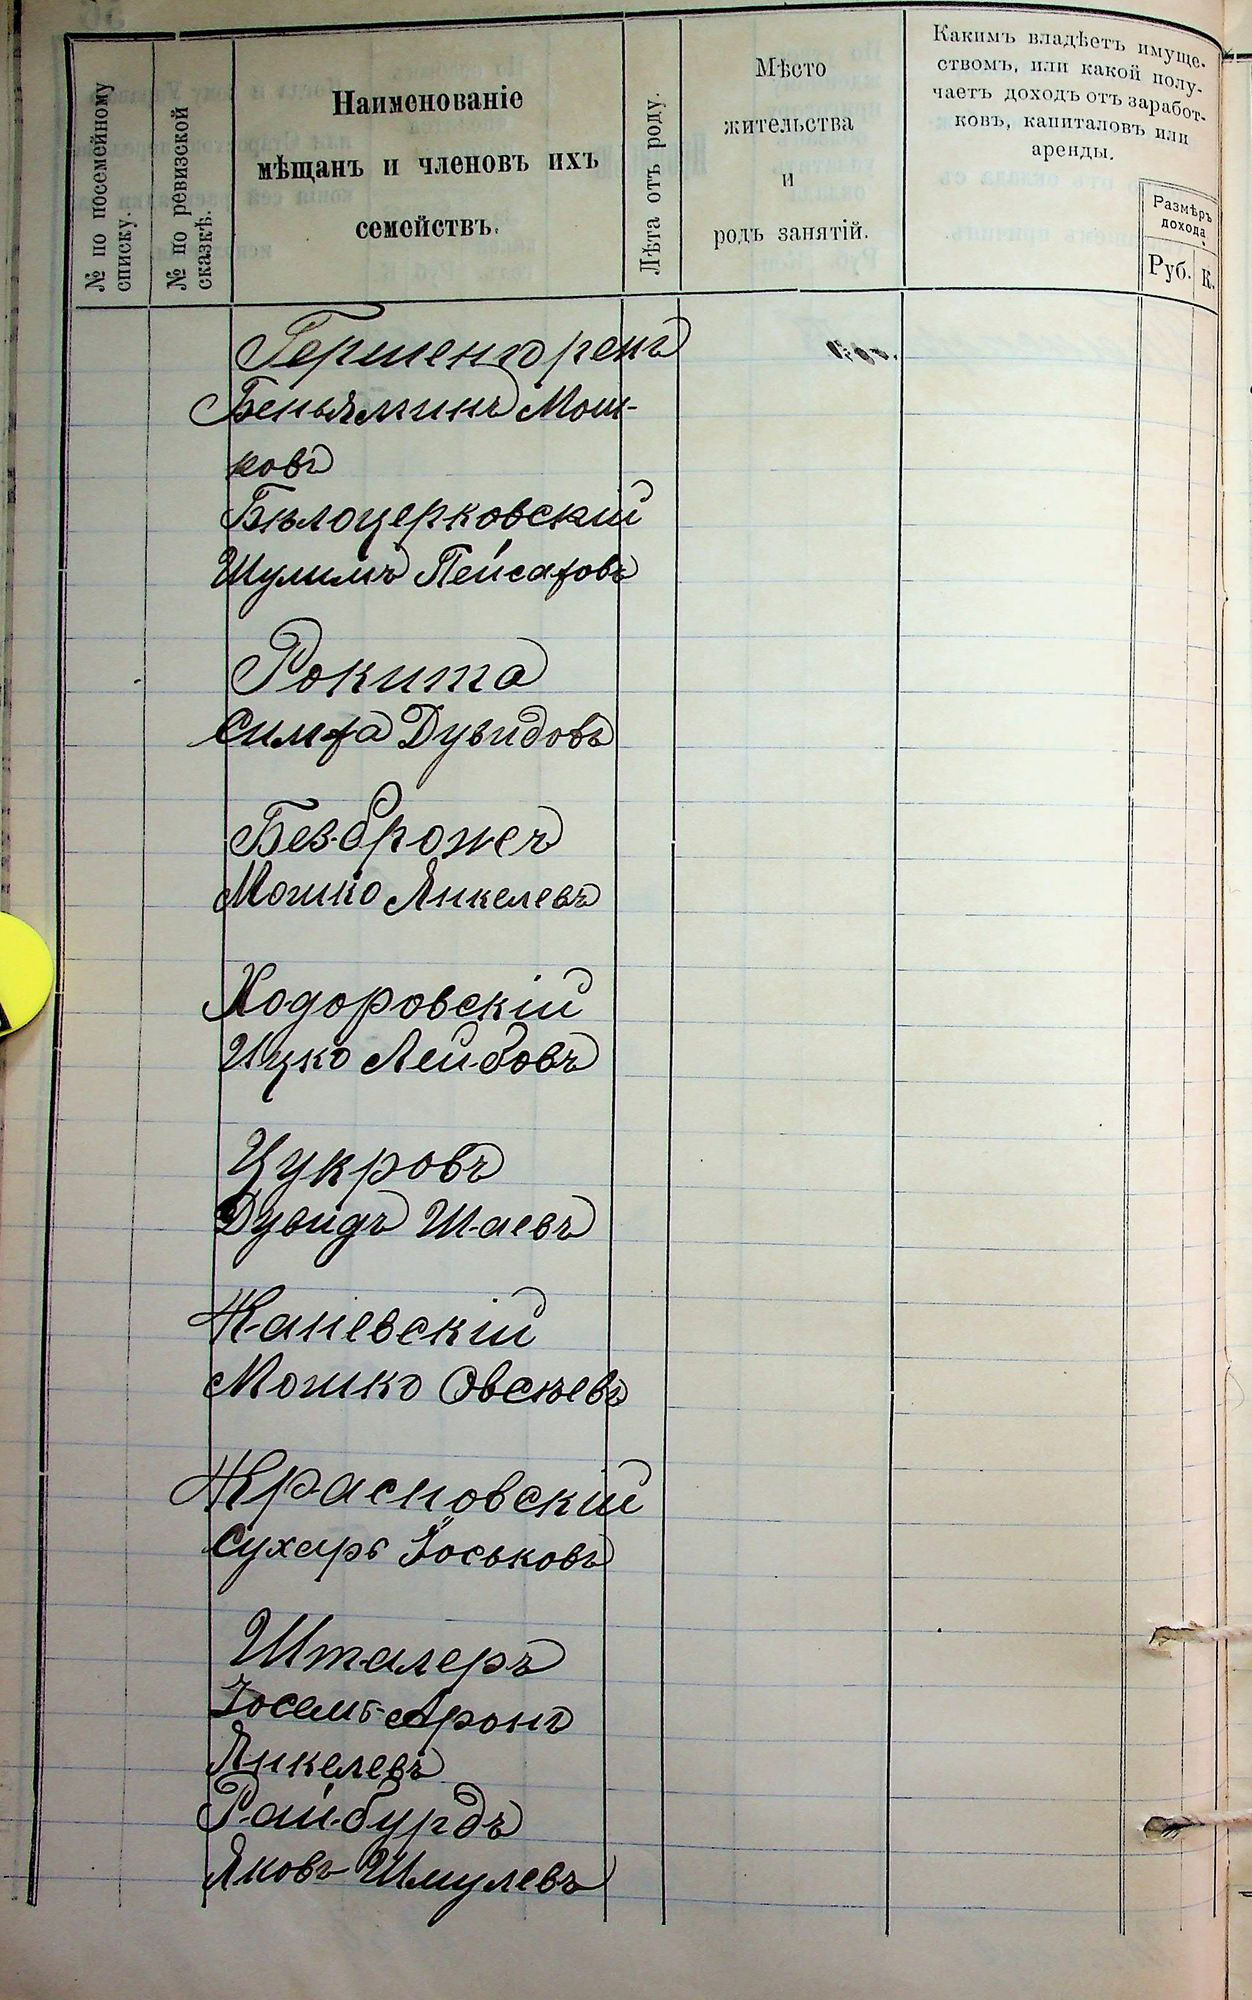 № по посемейному
списку.
№ по ревизской
сказкѣ.
Наименованіе
мѣщанъ и членовъ ихъ
семействъ.
Лѣта отъ роду.
Мѣсто
жительства
и
родъ занятій.
Какимъ владѣетъ имуще-
ствомъ, или какой полу-
чаетъ доходъ отъ заработ-
ковъ, капиталовъ или
аренды.
Размѣръ
дохода
Руб.
К.
Гершенгоренъ
Беньяминъ Мош-
ковъ
Бѣлоцерковскій
Шулимъ Пейсаховъ
Рокита
Симха Дувидовъ
Без-брожъ
Мошко Янкелевъ
Ходоровскій
Ицко Лейбовъ
Цукровъ
Дувидъ Шаевъ
Каневскій
Мошко Овсѣевъ
Красновскій
Сухаръ Іоськовъ
Шталеръ
Іосель-Аронъ
Янкелевъ
Райбурдъ
Яковъ Шмулевъ